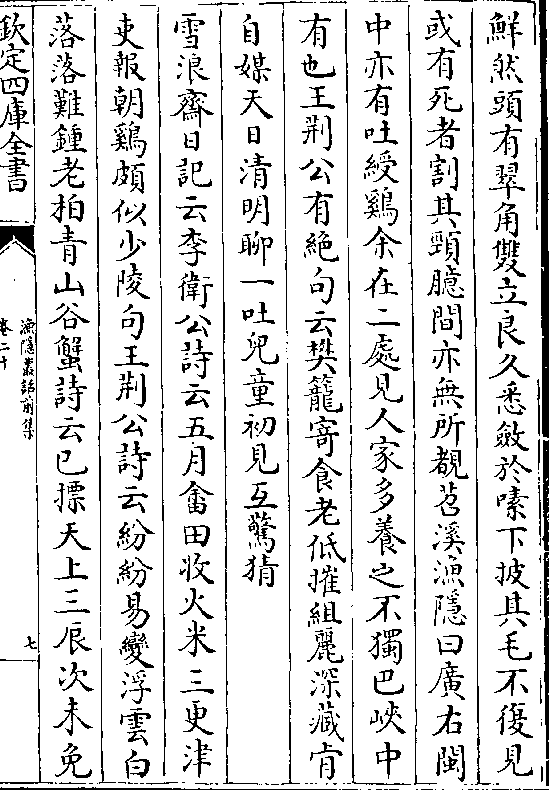 鮮然頭有翠角雙立良久悉斂於嗉下披其毛不復見
或有死者割其頸臆間亦無所覩苕溪漁隱曰廣右閩
中亦有吐綬鷄余在二處見人家多養之不獨巴峽中
有也王荆公有絶句云樊籠寄食老低摧組麗深藏肯
自媒天日清明聊一吐兒童初見互驚猜
雪浪齋日記云李衛公詩云五月畬田收火米三更津
吏報朝鷄頗似少陵句王荆公詩云紛紛易變浮雲白
落落難鍾老柏青山谷蟹詩云已摽天上三辰次未免
欽定四庫全書
漁隱叢話前集
卷二十
七